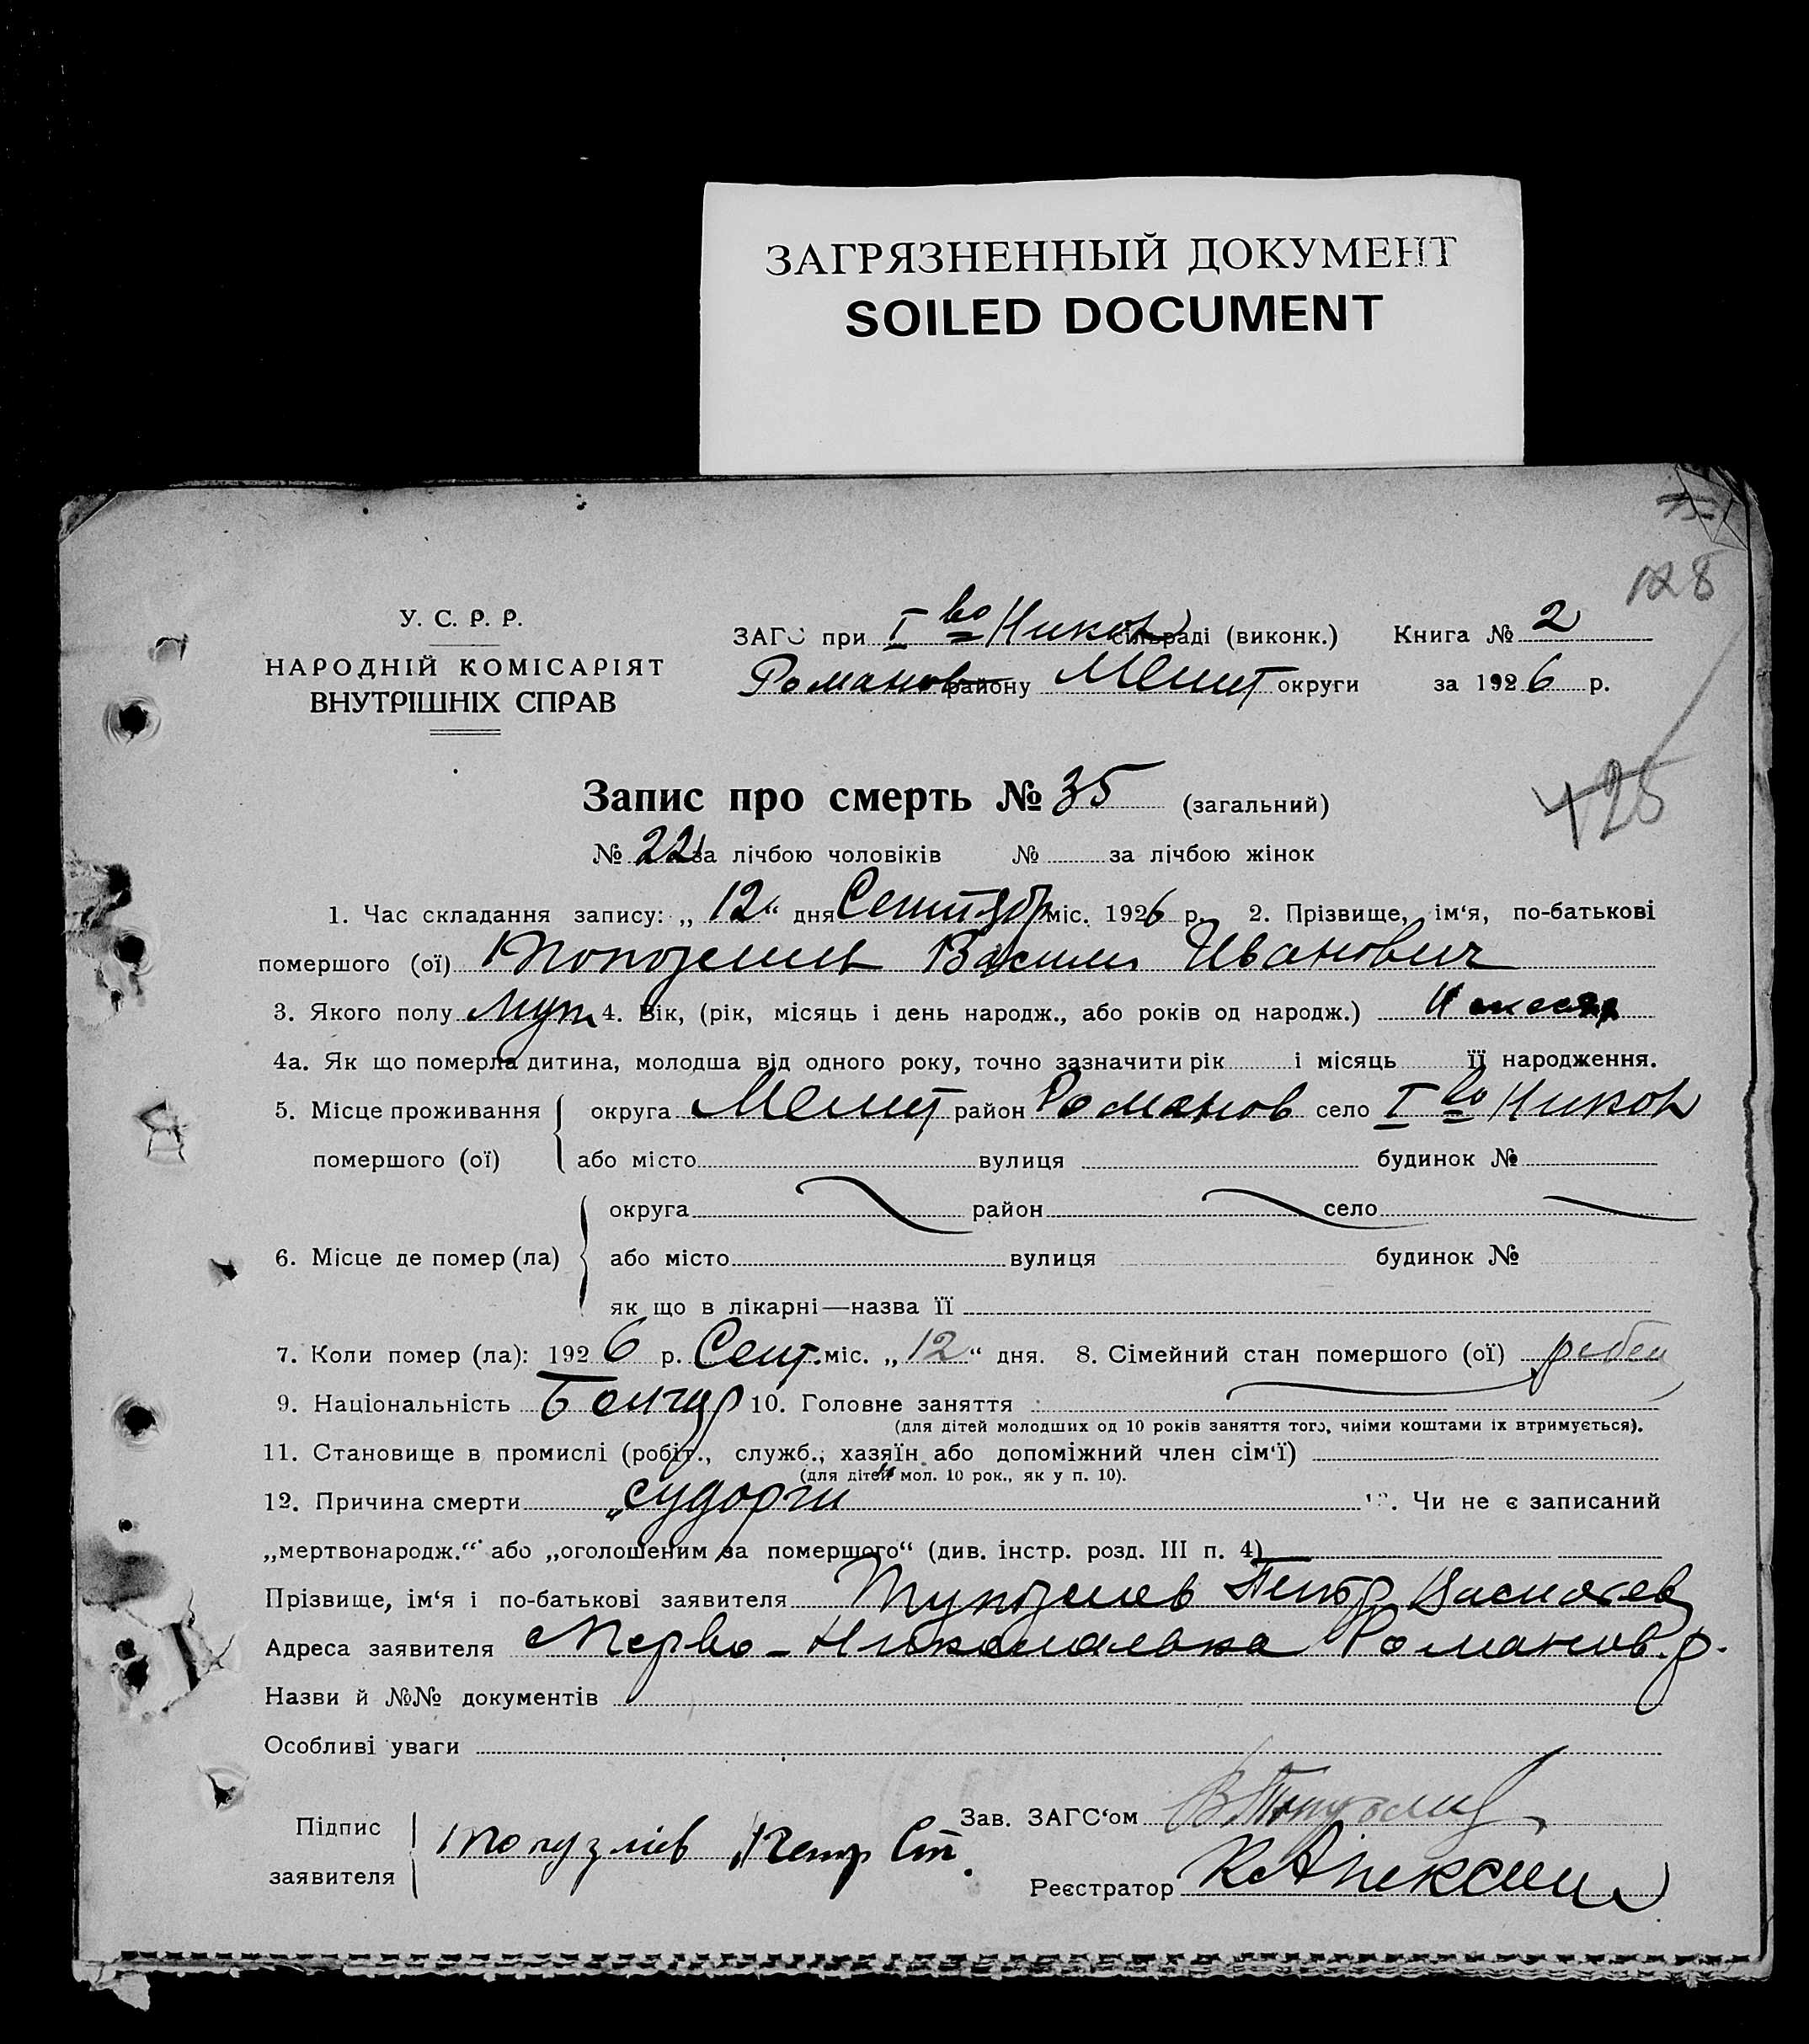 ЗАГРЯЗНЕННЫЙ ДОКУМЕНТ
SOILED DOCUMENT
128
У. С. Р. Р.
НАРОДНІЙ КОМІСАРІЯТ
ВНУТРІШНІХ СПРАВ
ЗАГС при І во Никол сільраді (виконк.) Книга № 2
Романов району Мелит округи за 1926 р.
Запис про смерть № 35 (загальний)
125
№ 22 за лічбою чоловіків № за лічбою жінок
1. Час складання запису: „12“ дня Сентябр міс. 1926 р. 2. Прізвище, ім‘я, по-батькові
помершого (ої) Василий Иванович
3. Якого полу муж 4. Вік, (рік, місяць і день народж., або років од народж.)
4а. Як що померла дитина, молодша від одного року, точно зазначити рік і місяць її народження.
5. Місце проживання округа Мелит район Романов село І во Никол
помершого (ої) або місто вулиця будинок №
округа район село
6. Місце де помер (ла) або місто вулиця будинок №
як що в лікарні—назва її
7. Коли помер (ла): 1926 р. Сент. міс. „12“ дня. 8. Сімейний стан помершого (ої) ребен
9. Національність Болгар 10. Головне заняття
(для дітей молодших од 10 років заняття того, чиїми коштами їх втримується).
11. Становище в промислі (робіт., служб., хазяїн або допоміжний член сім‘ї)
(для дітей мол. 10 рок., як у п. 10).
12. Причина смерти „судорги“ 13. Чи не є записаний
„мертвонародж.“ або „оголошеним за помершого“ (див. інстр. розд. III п. 4)
Прізвище, ім‘я і по-батькові заявителя Петр
Адреса заявителя Перво-Николаевка Романов. р.
Назви й №№ документів
Особливі уваги
Підпис
заявителя Топузлієв Петр Ст.
Зав. ЗАГС‘ом
Реєстратор